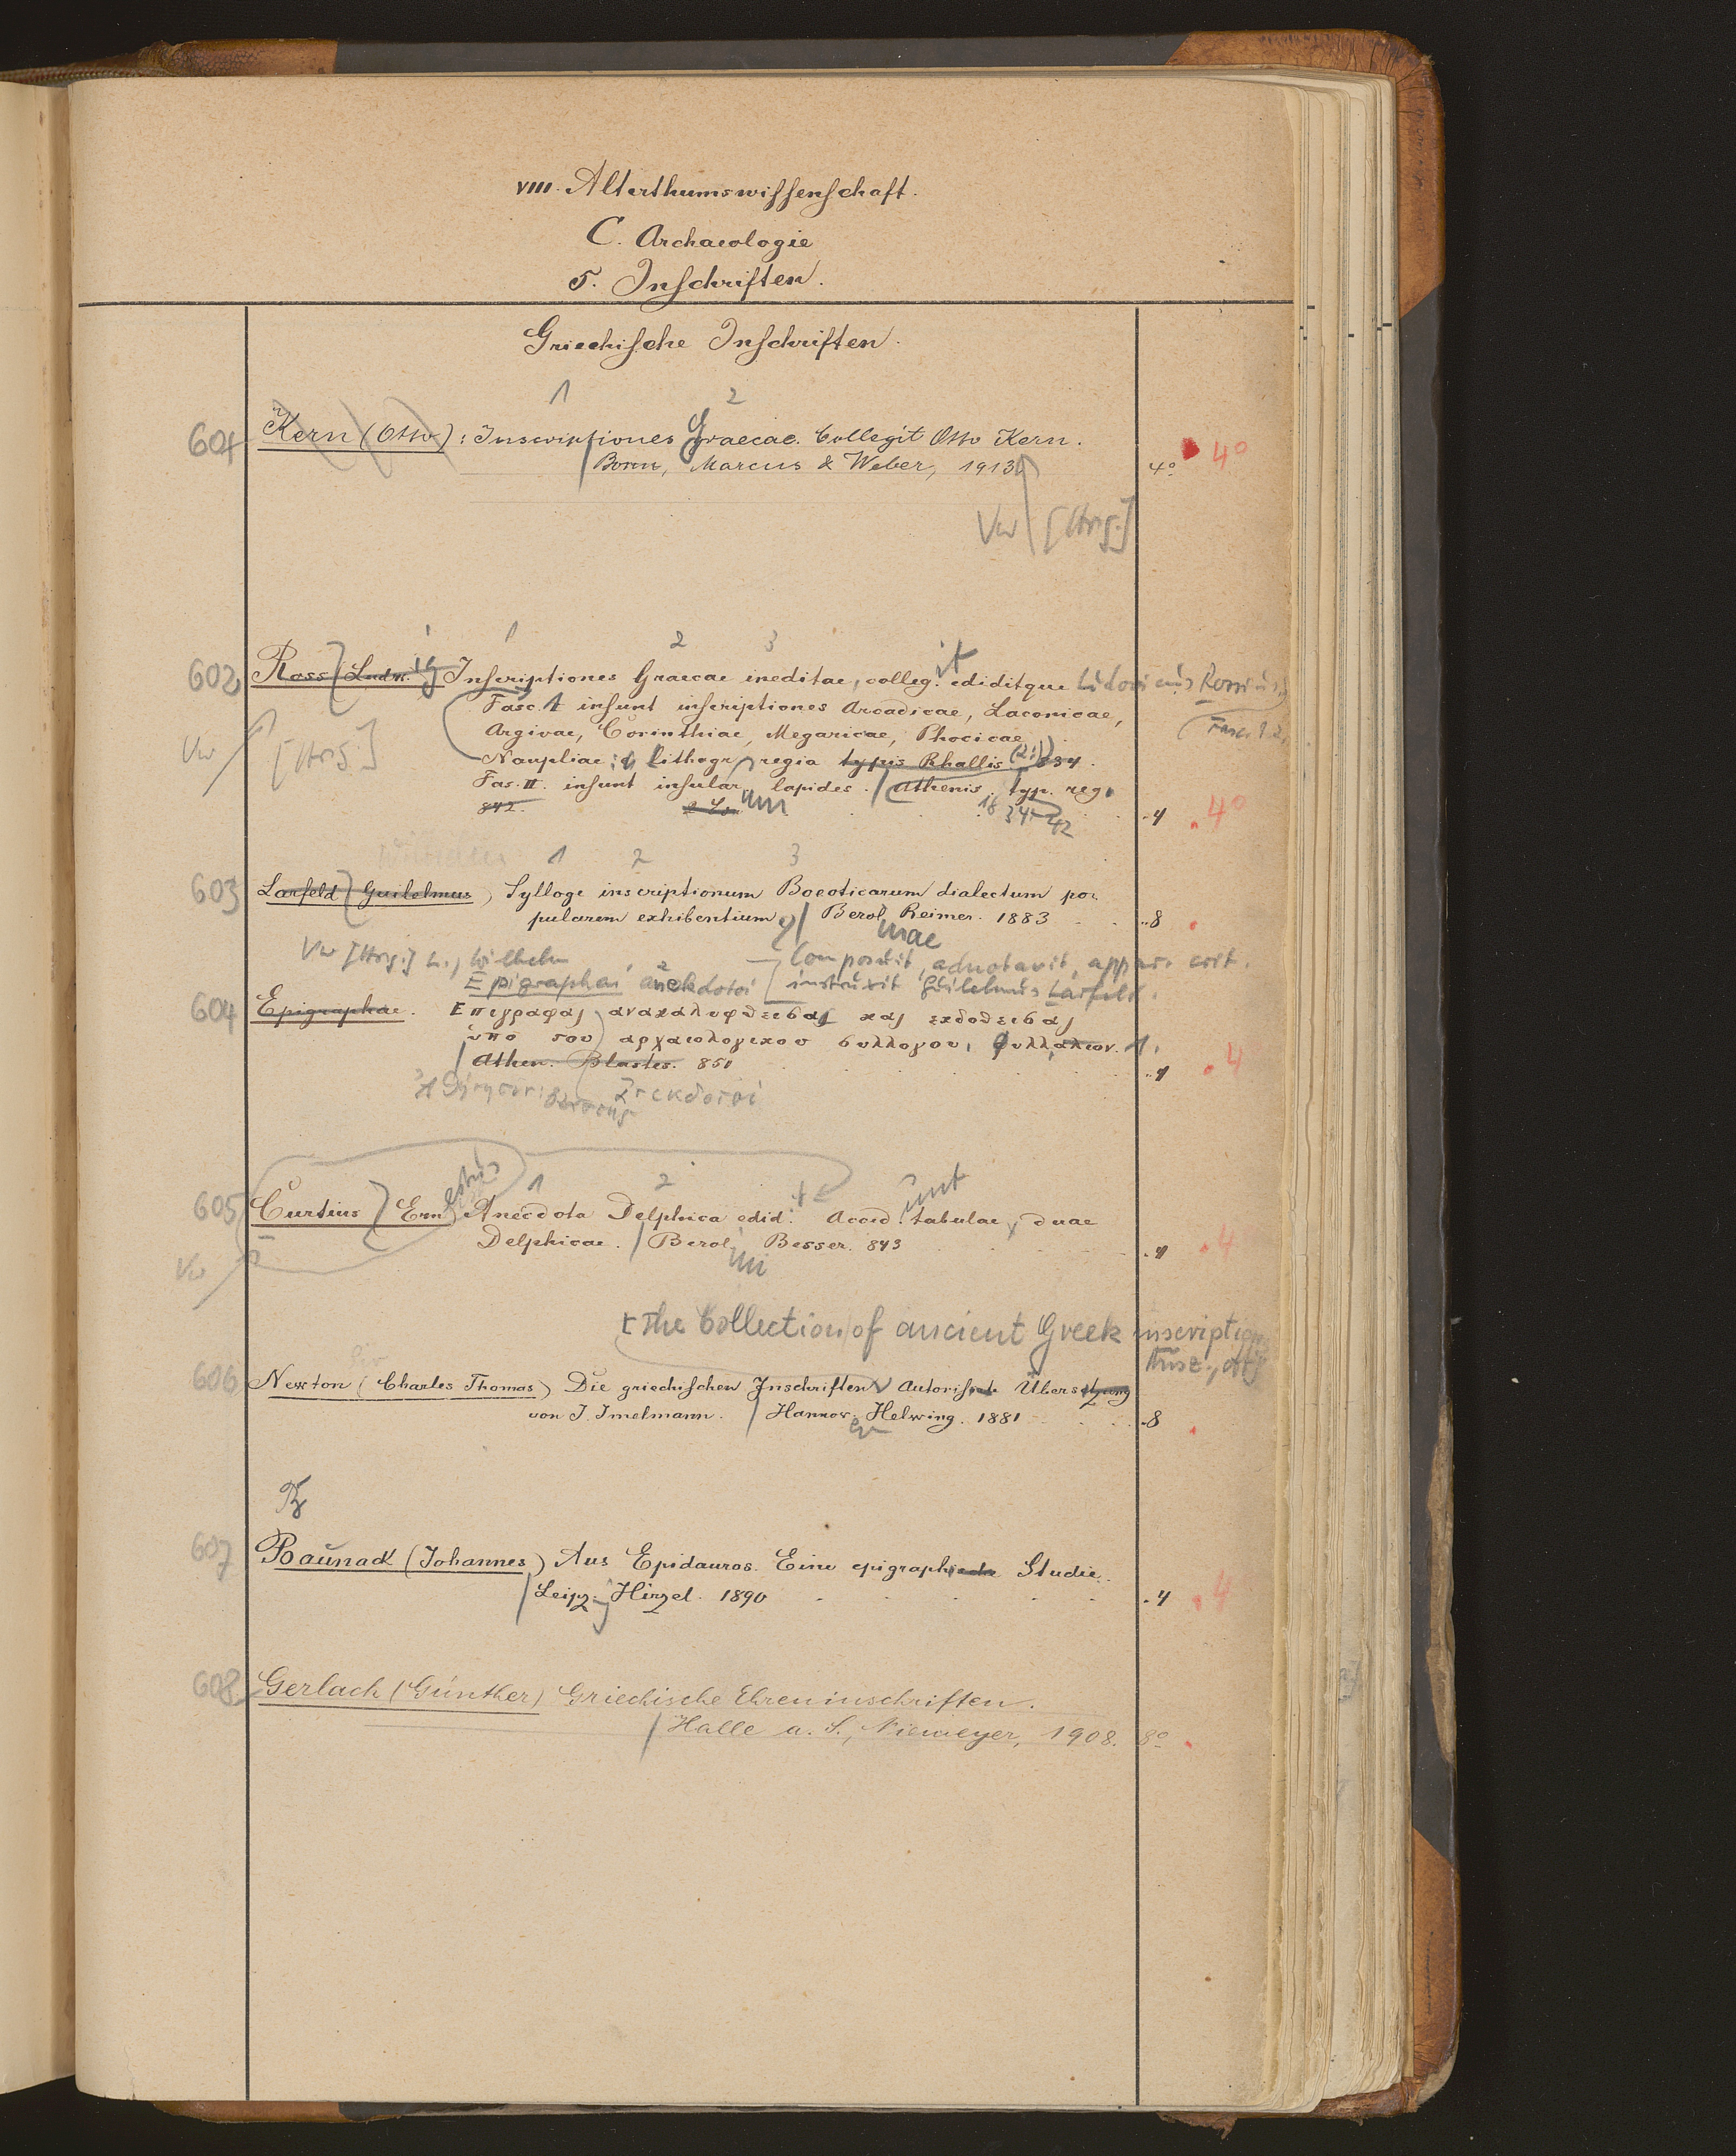 VIII. Alterthumswissenschaft.
C. Archaeologie
5. Inschriften.
Griechische Inschriften.
1 2
601 Kern (Otto): Inscriptiones Graecae. Collegit Otto Kern.
Bonn, Marcus & Weber, 1913. 4° 4°
Vw [Hrsg.]
1 2 3
602 Ross (Ludw.ig Inscriptiones Graecae ineditae, colleg.it ediditque Ludovicus Rossius
Fasc. 1 insunt inscriptiones Arcadicae, Laconicae, Fasc. 1.2.
Argivae, Corinthiae, Megaricae, Phocicae
Vw [Hrsg.] Naupliae: lithogr regia typis Rhallis (2:) 834.
Fas. II. insunt insular um lapides. Athenis. typ. reg.
842. 18 34-42 4 4°
1 2 3
603 Larfeld (Guilelmus) Sylloge inscriptionum Boeoticarum dialectum po-
pularem exhibentium Berol. Reimer. 1883 8
Vw [Hrsg.] L., Wilhelm Composuit, adnotavit, appar. crit.
Epigraphai anekdotoi instruxit Guilelmus Larfeld.
604 Epigraphae. Επιγραφαι ανακαλυφθεισαι και εκδοθεισαι
ὑπο του αρχαιολογικου συλλογου, φυλλαδιον. 1.
Athen. Blastes. 851 4 4
ἀνεκδοτοι
1 2
605 Curtius (Ern estus Anecdota Delphica edid. Acced.unt tabulae duae
Delphicae. Berol. Besser. 843 4 4
Vw
The Collection of ancient Greek inscriptions
606 Newton (Charles Thomas) Die griechischen Inschriften Autorisirte Übersetzung
von J. Imelmann. Hannov. Helwing. 1881 8
607 Baunack (Johannes) Aus Epidauros. Eine epigraphische Studie.
Leipz. Hirzel. 1890 4 4
608 Gerlach (Günther) Griechische Ehreninschriften.
Halle a. S., Niemeyer, 1908. 8°